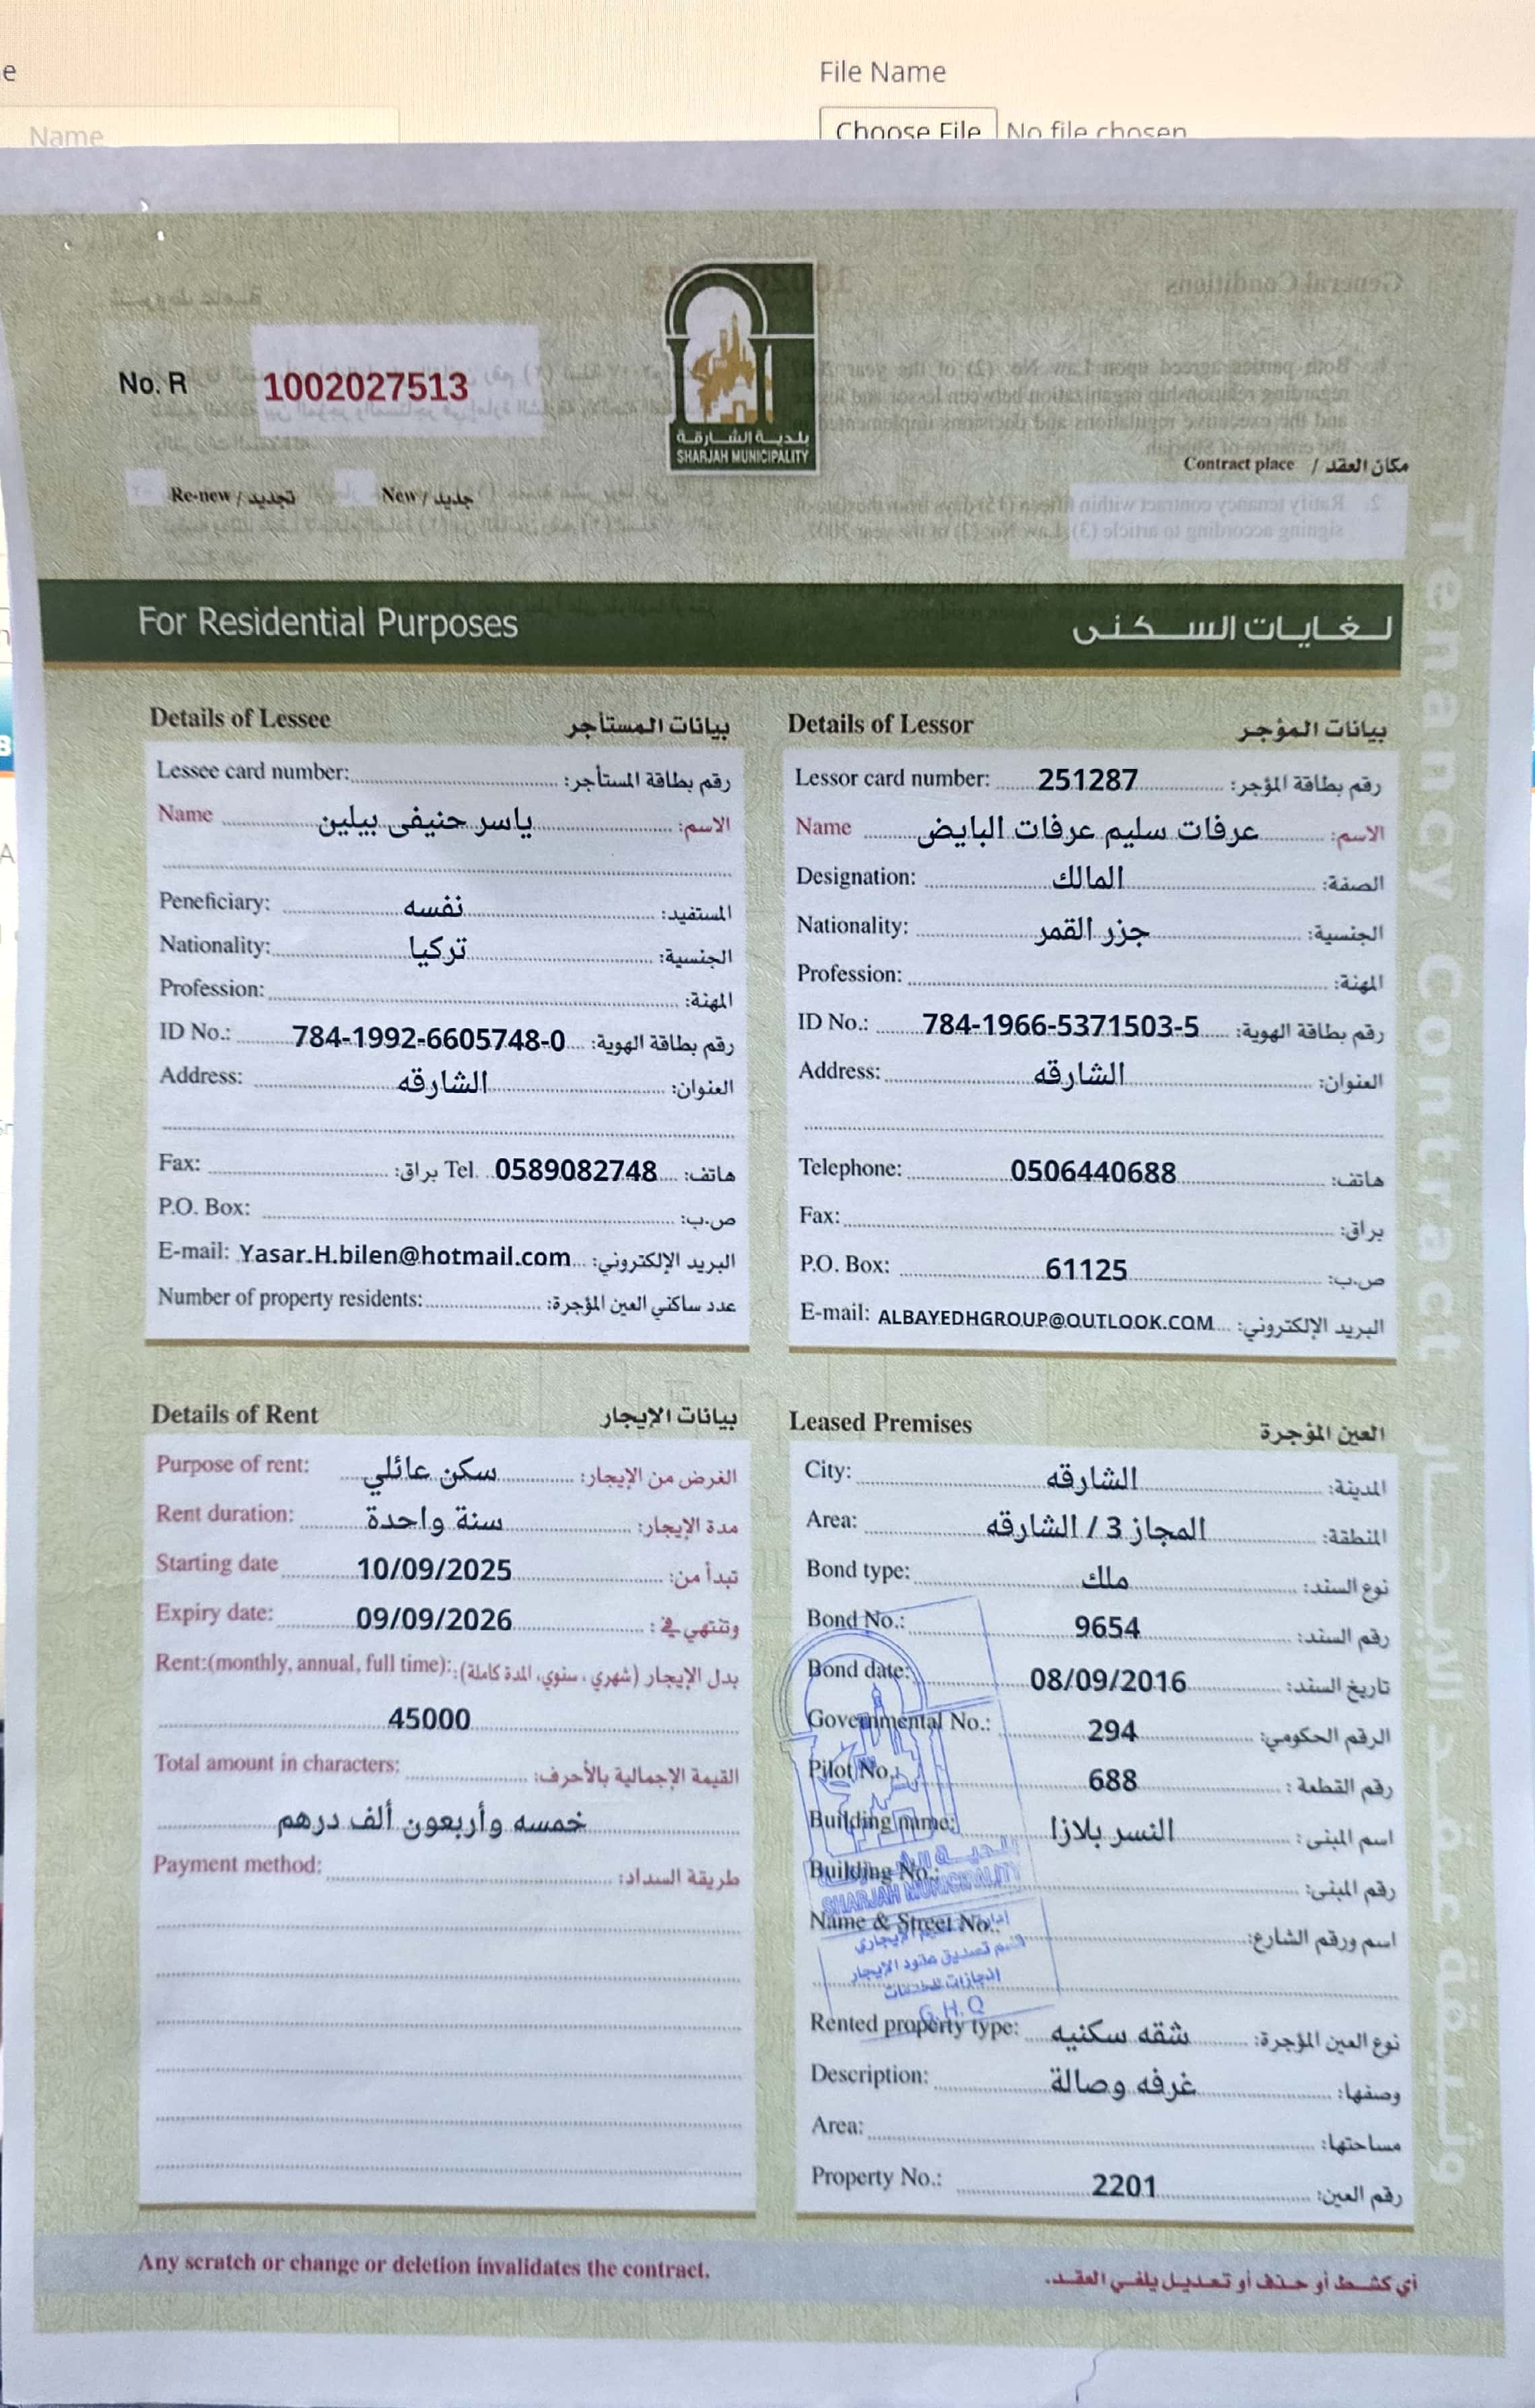 File Name
Name
Choose File No file chosen
No. R 1002027513
بلدية الشارقة
SHARJAH MUNICIPALITY
Contract place / مكان العقد
Re-new / تجديد New / جديد
For Residential Purposes لغايات السكنى
Tenancy Contract
Details of Lessee بيانات المستأجر
Lessee card number: رقم بطاقة المستأجر:
Name ياسر حنيفى بيلين الاسم:
Peneficiary: نفسه المستفيد:
Nationality: تركيا الجنسية:
Profession: المهنة:
ID No.: 784-1992-6605748-0 رقم بطاقة الهوية:
Address: الشارقه العنوان:
Fax: براق: Tel. 0589082748 هاتف:
P.O. Box: ص.ب:
E-mail: Yasar.H.bilen@hotmail.com البريد الإلكتروني:
Number of property residents: عدد ساكني العين المؤجرة:
Details of Lessor بيانات المؤجر
Lessor card number: 251287 رقم بطاقة المؤجر:
Name عرفات سليم عرفات البايض الاسم:
Designation: المالك الصفة:
Nationality: جزر القمر الجنسية:
Profession: المهنة:
ID No.: 784-1966-5371503-5 رقم بطاقة الهوية:
Address: الشارقه العنوان:
Telephone: 0506440688 هاتف:
Fax: براق:
P.O. Box: 61125 ص.ب:
E-mail: ALBAYEDHGROUP@OUTLOOK.COM البريد الإلكتروني:
Details of Rent بيانات الإيجار
Purpose of rent: سكن عائلي الغرض من الإيجار:
Rent duration: سنة واحدة مدة الإيجار:
Starting date 10/09/2025 تبدأ من:
Expiry date: 09/09/2026 وتنتهي في:
Rent:(monthly, annual, full time): بدل الإيجار (شهري، سنوي، المدة كاملة):
45000
Total amount in characters: القيمة الإجمالية بالأحرف:
خمسه وأربعون ألف درهم
Payment method: طريقة السداد:
Leased Premises العين المؤجرة
City: الشارقه المدينة:
Area: المجاز 3 / الشارقه المنطقة:
Bond type: ملك نوع السند:
Bond No.: 9654 رقم السند:
Bond date: 08/09/2016 تاريخ السند:
Governmental No.: 294 الرقم الحكومي:
Pilot No.: 688 رقم القطعة:
Building name: النسر بلازا اسم المبنى:
Building No.: رقم المبنى:
SHARJAH MUNICIPALITY
Name & Street No.: اسم ورقم الشارع:
قسم تصديق عقود الإيجار
G.H.Q
Rented property type: شقه سكنيه نوع العين المؤجرة:
Description: غرفه وصالة وصفها:
Area: مساحتها:
Property No.: 2201 رقم العين:
Any scratch or change or deletion invalidates the contract. أي كشط أو حذف أو تعديل يلغي العقد.